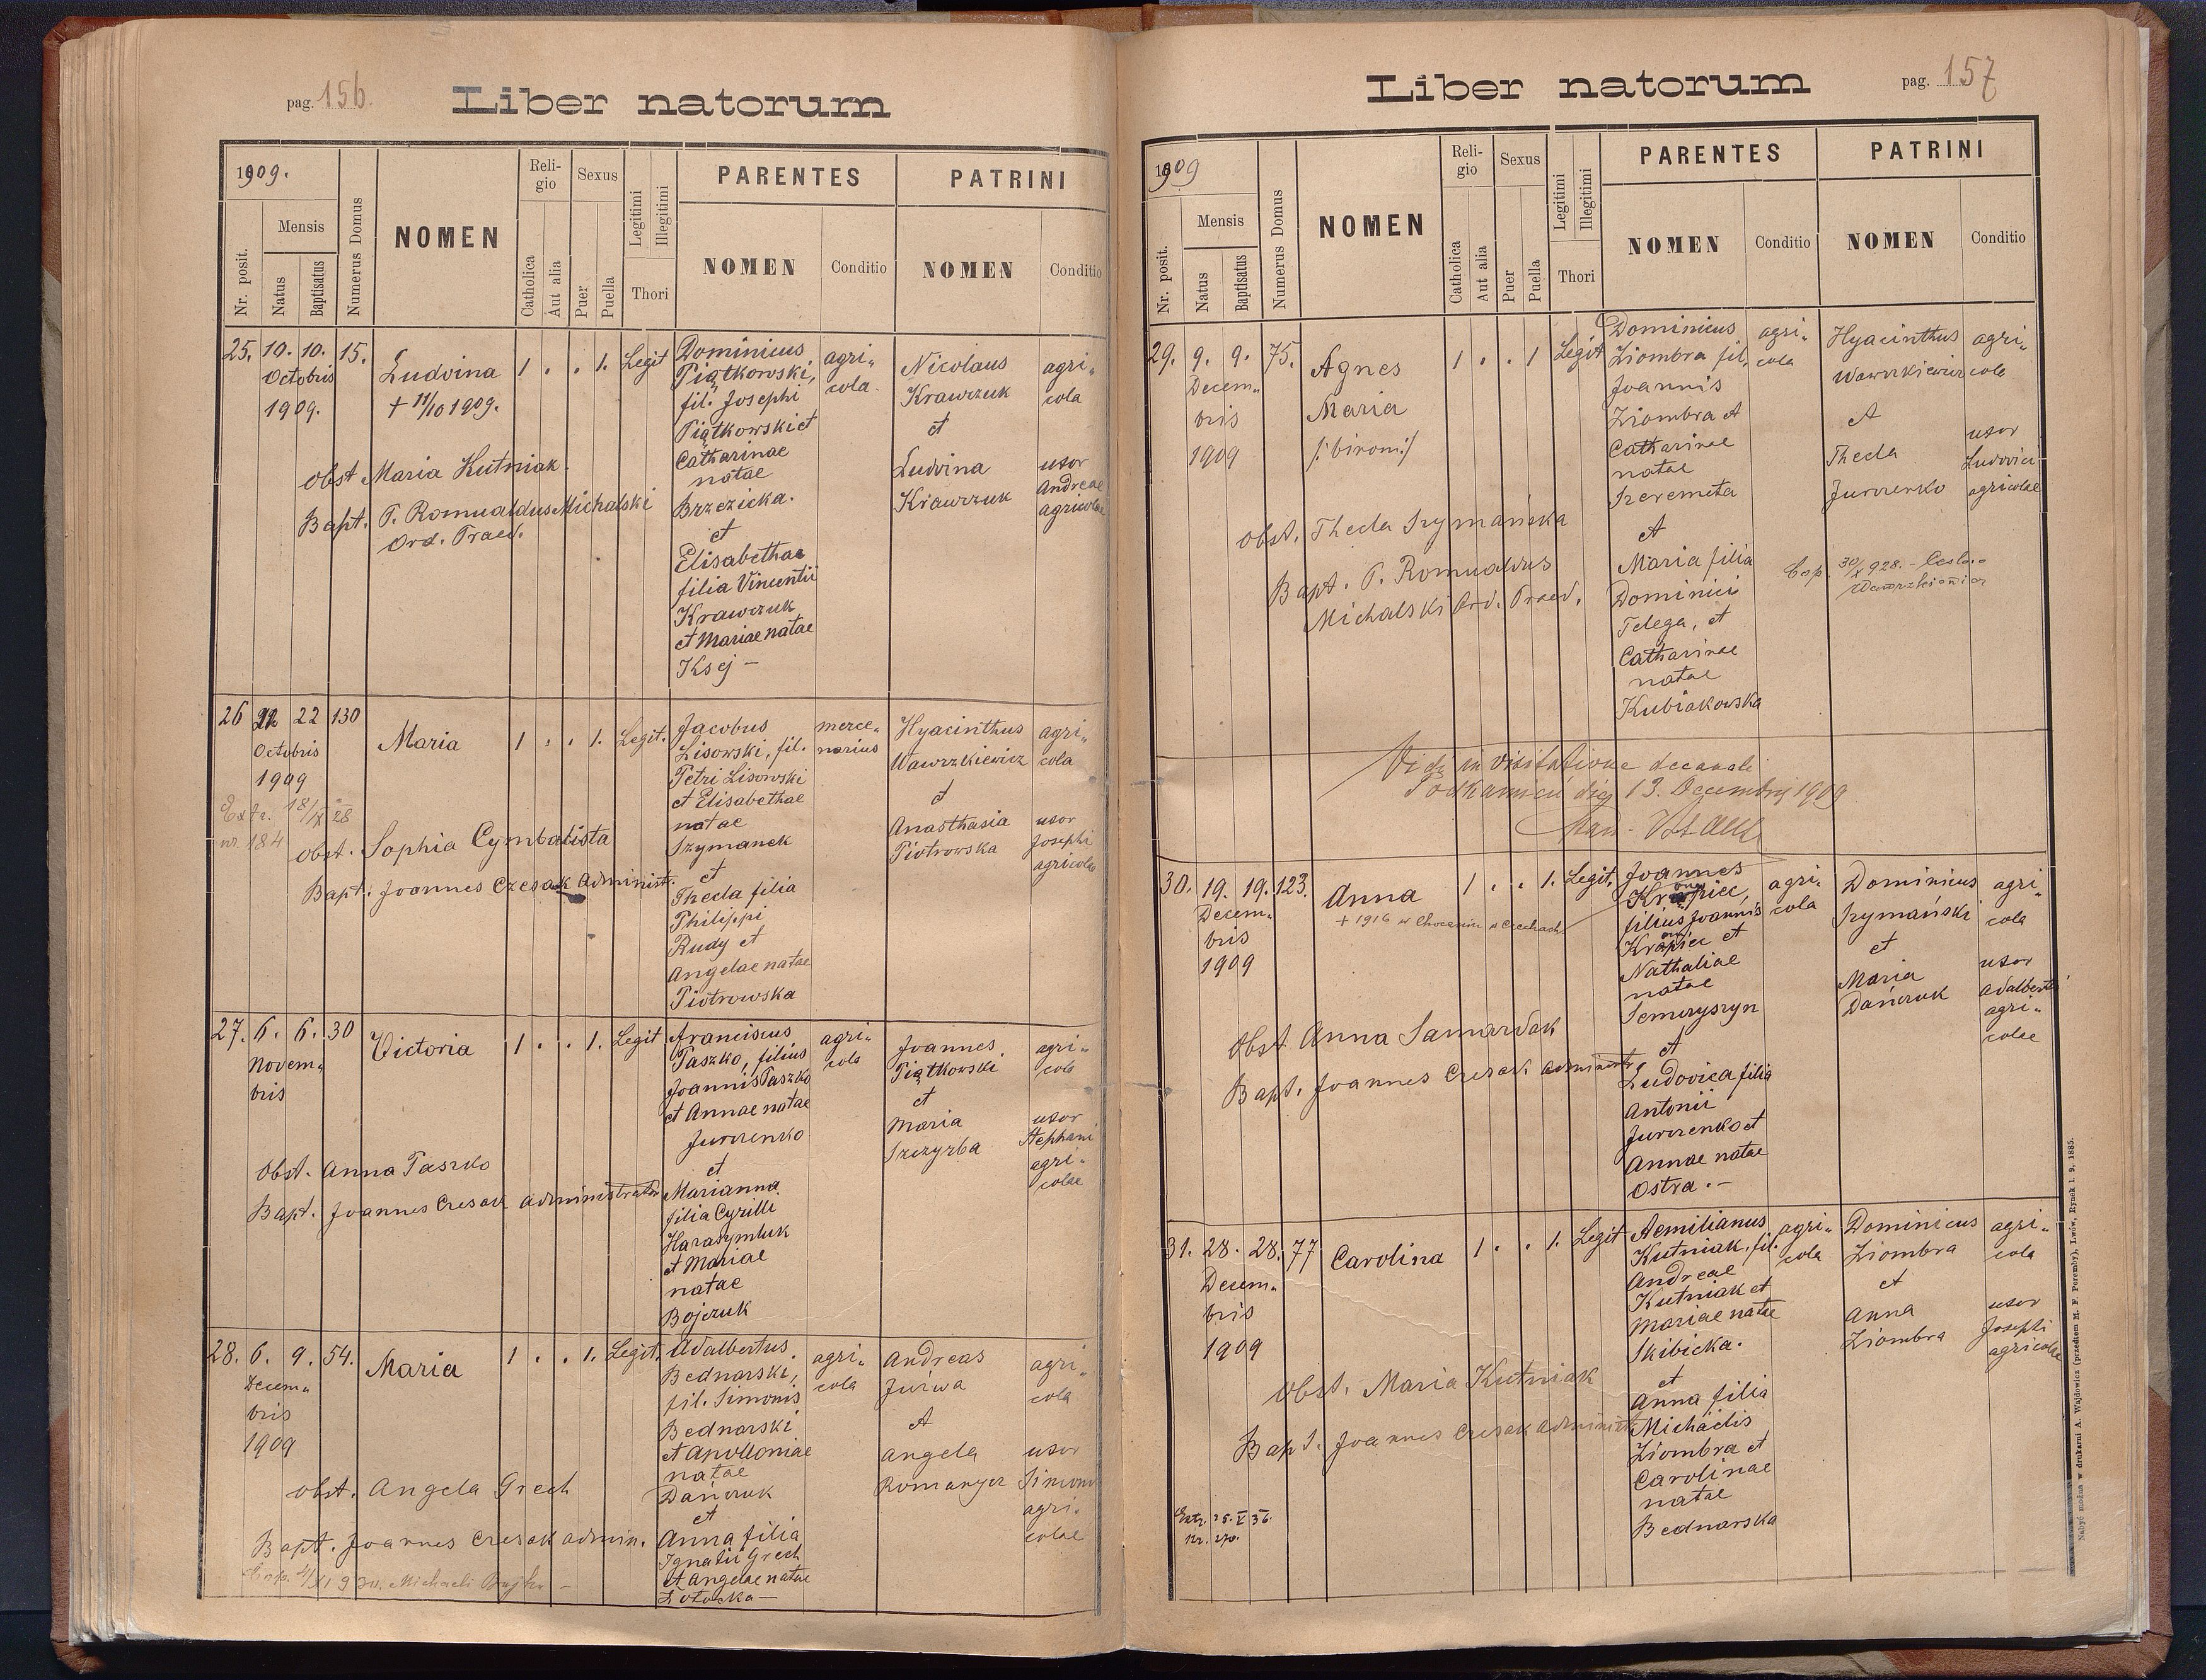 pag. 156.
Liber natorum
1909.
Nr. posit.
Mensis
Natus
Baptisatus
Numerus Domus
NOMEN
Reli-
gio
Catholica
Aut alia
Sexus
Puer
Puella
Legitimi
Illegitimi
Thori
PARENTES
NOMEN
Conditio
PATRINI
NOMEN
Conditio
25. 10. 10. 15.
Octobris
1909.
Ludvina
+ 11/10 1909.
1 . . 1. Legit
Dominicus
Piątkowski,
fil. Josephi
Piątkowski et
Catharinae
natae
Brzezicka.
et
Elisabethae
filia Vincentii
Krawczuk
et Mariae natae
Ksej —
agri-
cola.
Nicolaus
Krawczuk
et
Ludvina
Krawczuk
agri-
cola
uxor
Andreae
agricolae
obst Maria Kutniak.
Bapt. P. Romualdus Michalski
Ord. Praed.
26 22 130
Octobris
1909
Maria
1 . . 1. Legit.
Jacobus
Lisowski, fil.
Petri Lisowski
et Elisabethae
natae
Szymanek
et
Thecla filia
Philippi
Rudy et
Angelae natae
Piotrowska
merce-
narius
Hyacinthus
Wawrzkiewicz
et
Anasthasia
Piotrowska
agri-
cola
uxor
Josephi
agricolae
Extr. 18/IX 28
nr. 184
obst. Sophia Cymbalista
Bapt. Joannes Czesak administ.
27. 6. 6. 30
Novem-
bris
Victoria
1 . . 1. Legit
Franciscus
Paszko, filius
Joannis Paszko
et Annae natae
Jurczenko
et
Marianna
filia Cyrilli
Harasymluk
et Mariae
natae
Bojczuk
agri-
cola
Joannes
Piątkowski
et
Maria
Szczyrba
agri-
cola
uxor
Stephani
agri-
colae
Obst. Anna Paszko
Bapt. Joannes Czesak administrator
28. 6. 9. 54.
Decem-
bris
1909
Maria
1 . . 1. Legit.
Adalbertus
Bednarski,
fil. Simonis
Bednarski
et Apolloniae
natae
Dańczuk
et
Anna filia
Ignatii Grech
et Angelae natae
Zotocka —
agri-
cola
Andreas
Juśwa
et
Angela
Romanyer
agri-
cola
uxor
Simonis
agri-
colae
obst. Angela Grech
Bapt. Joannes Czesak admin.
pag. 157
Liber natorum
1909
Nr. posit.
Mensis
Natus
Baptisatus
Numerus Domus
NOMEN
Reli-
gio
Catholica
Aut alia
Sexus
Puer
Puella
Legitimi
Illegitimi
Thori
PARENTES
NOMEN
Conditio
PATRINI
NOMEN
Conditio
29. 9. 9. 75.
Decem-
bris
1909
Agnes
Maria
/:binom:/
1 . . 1 Legit
Dominicus
Ziombra fil.
Joannis
Ziombra et
Catharinae
natae
Szeremeta
et
Maria filia
Dominici
Telega, et
Catharinae
natae
Kubiakowska
agri-
cola
Hyacinthus
Wawrzkiewicz
et
Thecla
Jurczenko
agri-
cola
uxor
Ludovici
agricolae
obst. Thecla Szymańska
Bapt. P. Romualdus
Michalski Ord. Praed.
Cop. 30/X 928. - Ceslao
Wawrzkiewicz
Vidi in visitatione decanali
Podkamień die 13. Decembris 1909
30. 19. 19. 123.
Decem-
bris
1909
Anna
+ 1916 w Choceniu w Czechach
1 . . 1. Legit.
Joannes
Kropiec,
filius Joannis
Kropiec et
Nathaliae
natae
Semczyszyn
et
Ludovica filia
Antonii
Jurczenko et
Annae natae
Ostra. —
agri-
cola
Dominicus
Szymański
et
Maria
Dańczuk
agri-
cola
uxor
Adalberti
agri-
colae
Obst Anna Samardak
Bapt. Joannes Czesak administr.
31. 28. 28. 77
Decem-
bris
1909
Carolina
1 . . 1. Legit
Aemilianus
Kutniak, fil.
Andreae
Kutniak et
Mariae natae
Skibicka.
et
Anna filia
Michaëlis
Ziombra et
Carolinae
natae
Bednarska
agri-
cola
Dominicus
Ziombra
et
Anna
Ziombra
agri-
cola
uxor
Josephi
agricolae
Obst. Maria Kutniak
Bapt. Joannes Czesak administ.
Extr. 25. V 36.
Nr. 270.
Nabyć można w drukarni A. Wajdowicz (przedtem M. F. Poremby), Lwów, Rynek l. 9. 1885.